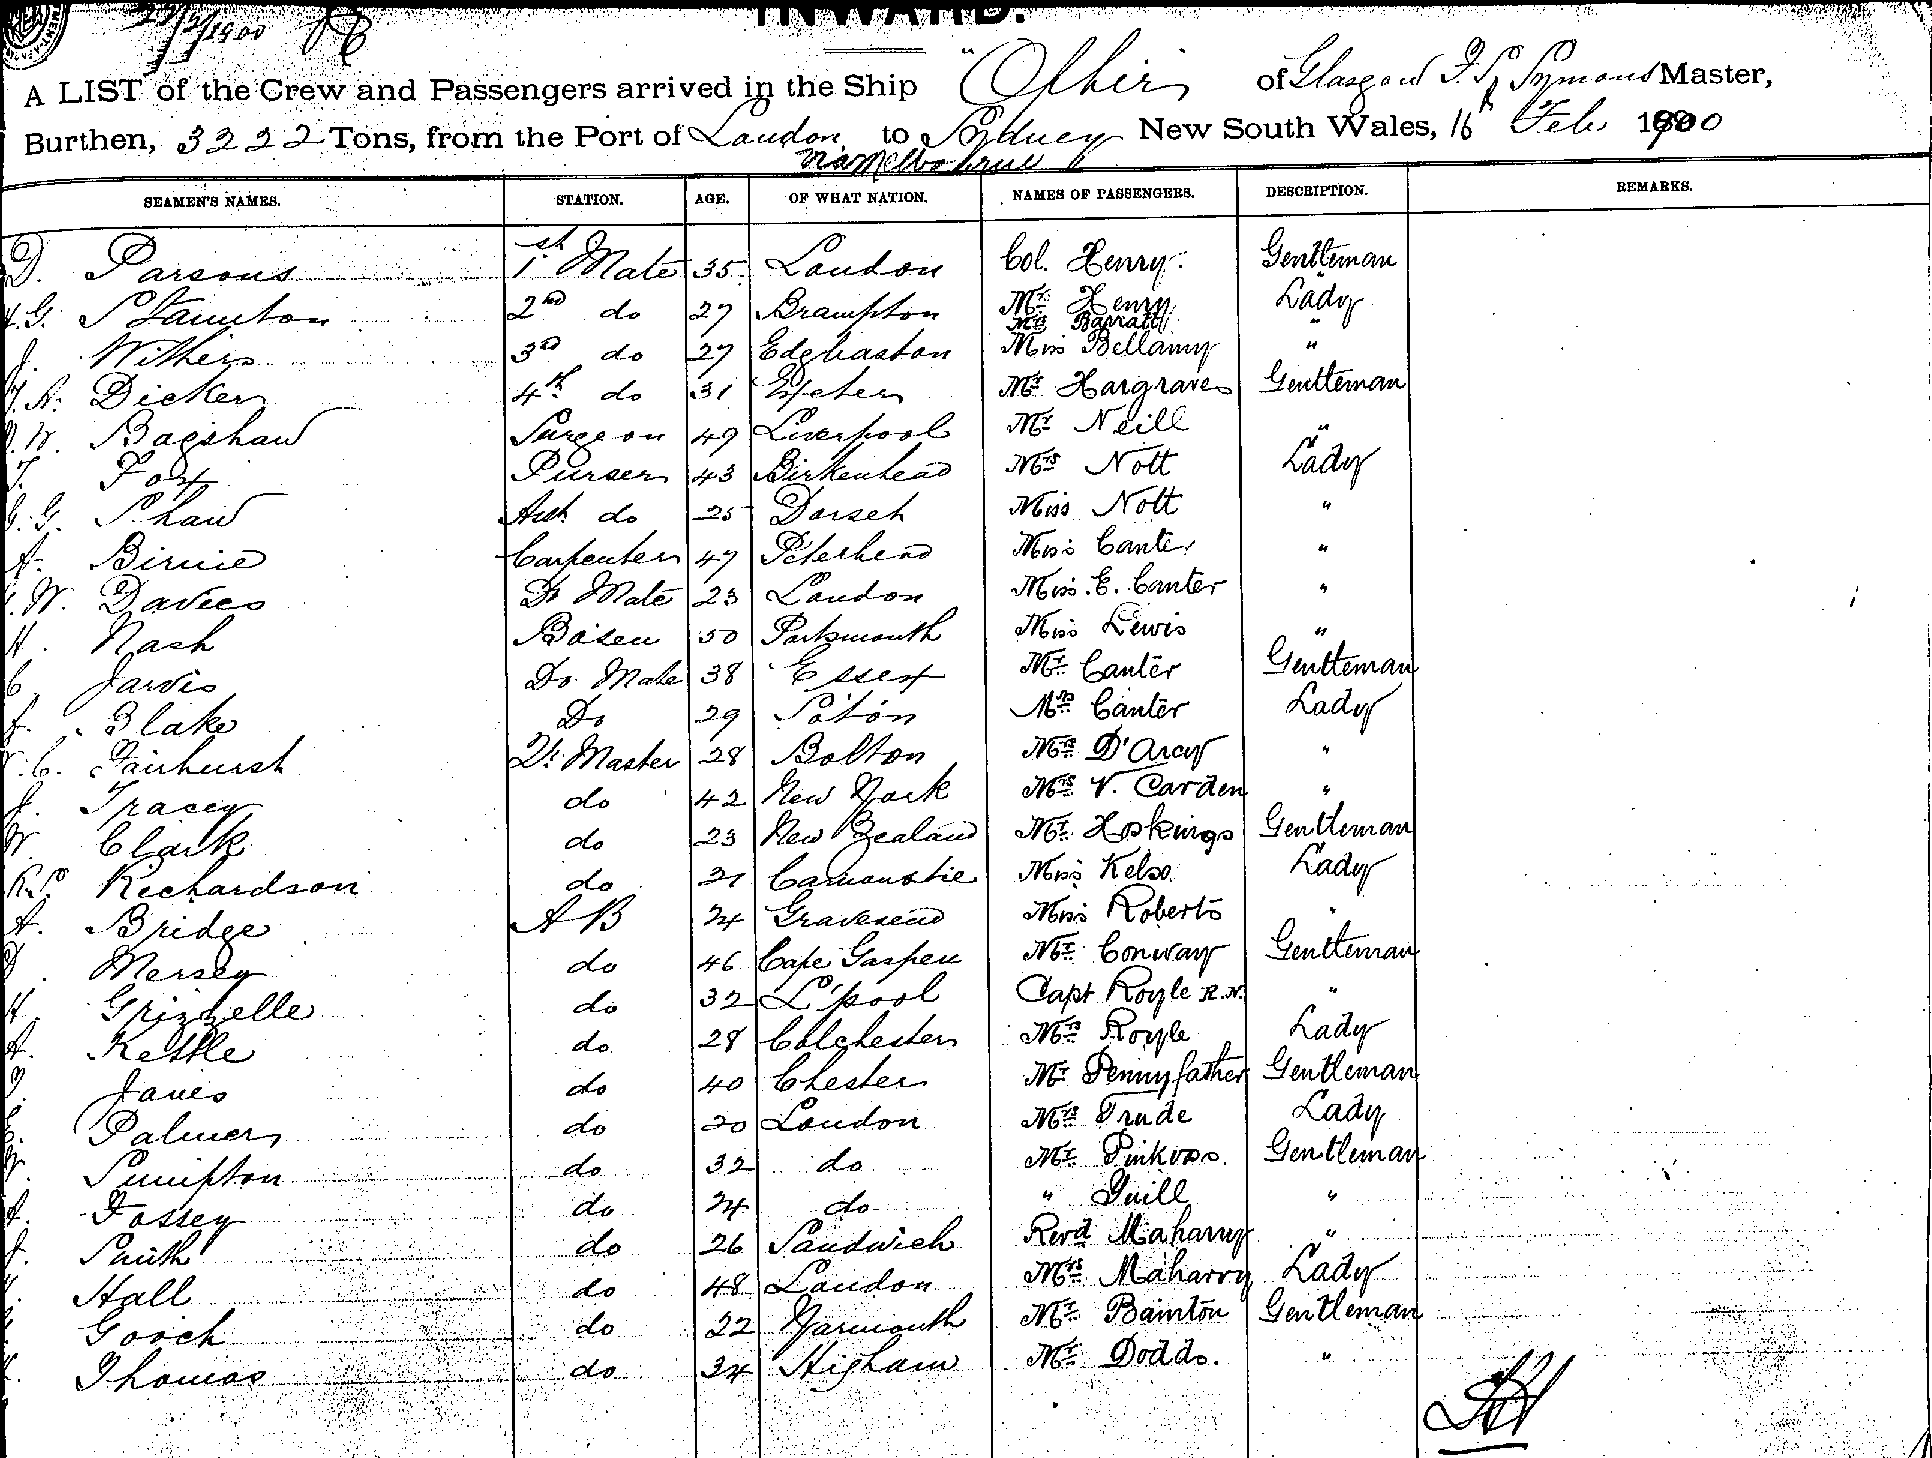 INWARD.
/2/1900
A LIST of the Crew and Passengers arrived in the Ship "Ophir" of Glasgow J. F. Symons Master,
Burthen, 3222 Tons, from the Port of London to Sydney New South Wales, 16th Feb 1900
via Melbourne
SEAMEN'S NAMES. STATION. AGE. OF WHAT NATION. NAMES OF PASSENGERS. DESCRIPTION. REMARKS.
D. Parsons 1st Mate 35 London Col. Henry. Gentleman
G. Staunton 2nd do 27 Brampton Mrs Henry Lady
Mrs Barratt "
J. Withers 3rd do 27 Edgbaston Miss Bellamy "
Dicker 4th do 31 Exeter Mr Hargraves Gentleman
W. Bagshaw Surgeon 49 Liverpool Mr Neill "
T. Fox Purser 43 Birkenhead Mrs Nott Lady
G. Shaw Asst. do 25 Dorset Miss Nott "
A. Birnie Carpenter 47 Peterhead Miss Canter "
W. Davies Do Mate 23 London Miss. E. Canter "
H. Nash Bosen 50 Portsmouth Miss Lewis "
C. Jarvis Do. Mate 38 Essex Mr Canter Gentleman
J. Blake Do 29 Mrs Canter Lady
C. Fairhurst Qr Master 28 Bolton Mrs D'Arcy "
J. Tracey do 42 New York Mrs V. Carden "
W. Clark do 23 New Zealand Mr Hoskings Gentleman
Richardson do 21 Carnoustie Miss Kelso. Lady
A. Bridge AB 24 Gravesend Miss Roberts "
Mersey do 46 Cape Gaspen Mr Conway Gentleman
H. Grizzelle do 32 L'pool Capt Royle R.N. "
A. Kettle do 28 Colchester Mrs Royle Lady
Janes do 40 Chester Mr Pennyfather Gentleman
Palmer do 20 London Mrs Trude Lady
W. Sumpton do 32 do Mr Pinkoss. Gentleman
Fossey do 24 do " Guill "
J. Smith do 26 Sandwich Revd Maharry "
Hall do 48 London Mrs Maharry Lady
Gooch do 22 Yarmouth Mr Bainton Gentleman
Thomas do 34 Higham Mr Dodds. "